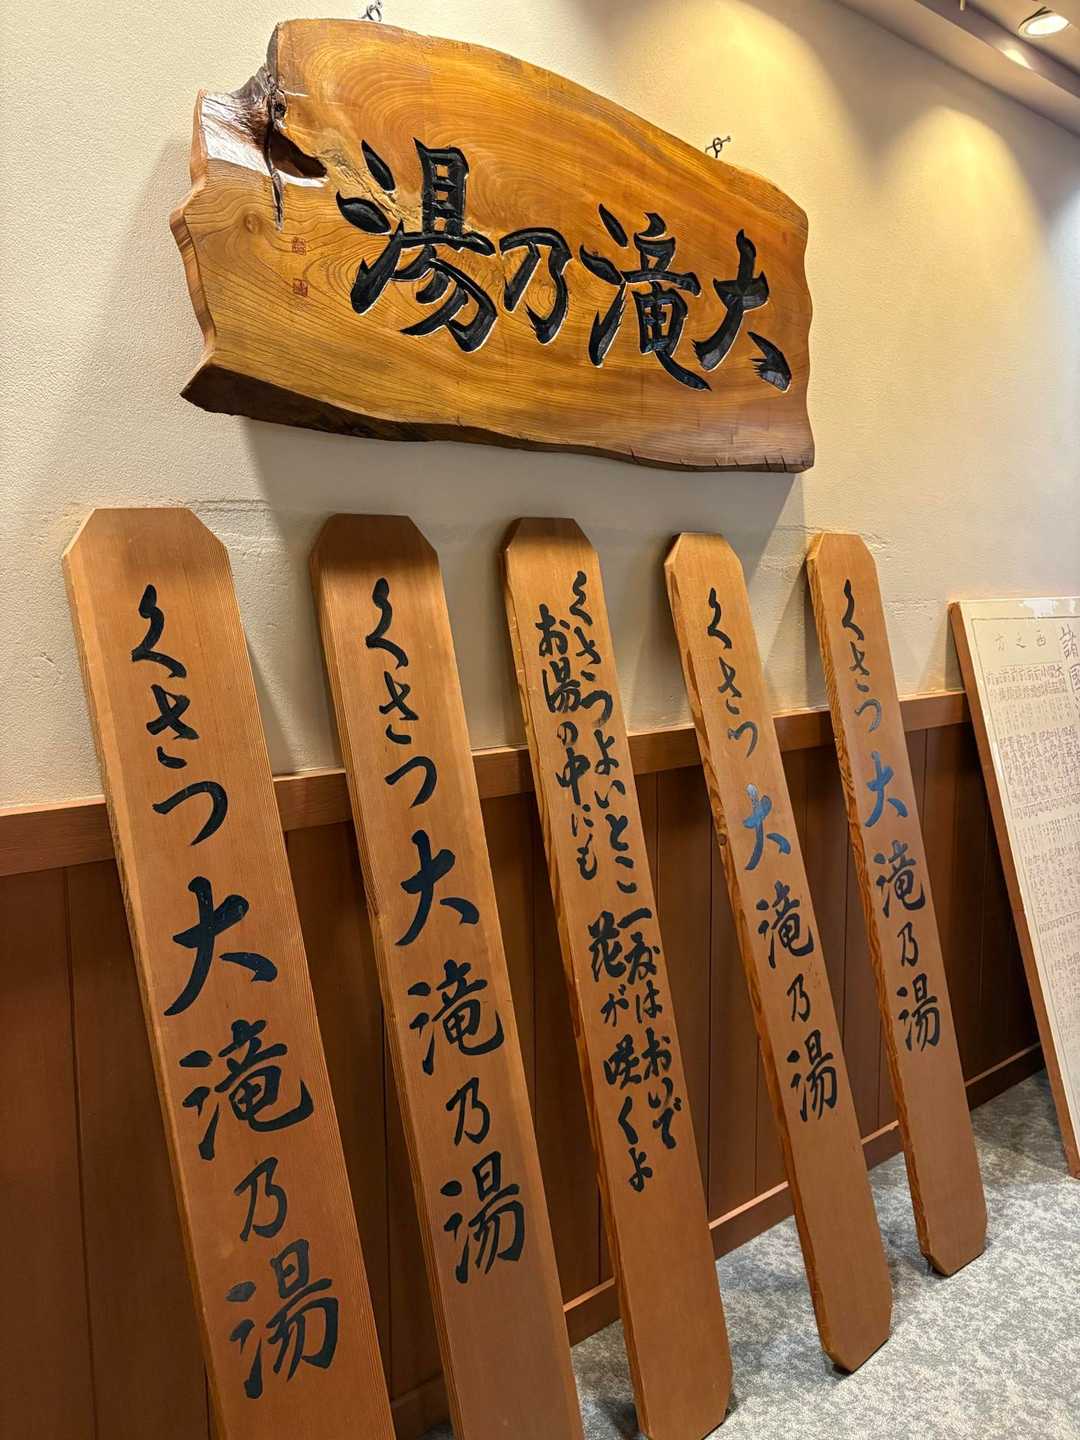 大滝乃湯
くさつ大滝乃湯
くさつ大滝乃湯
くさつよいとこ一度はおいで
お湯の中にも花が咲くよ
くさつ大滝乃湯
くさつ大滝乃湯
諸国
西之方